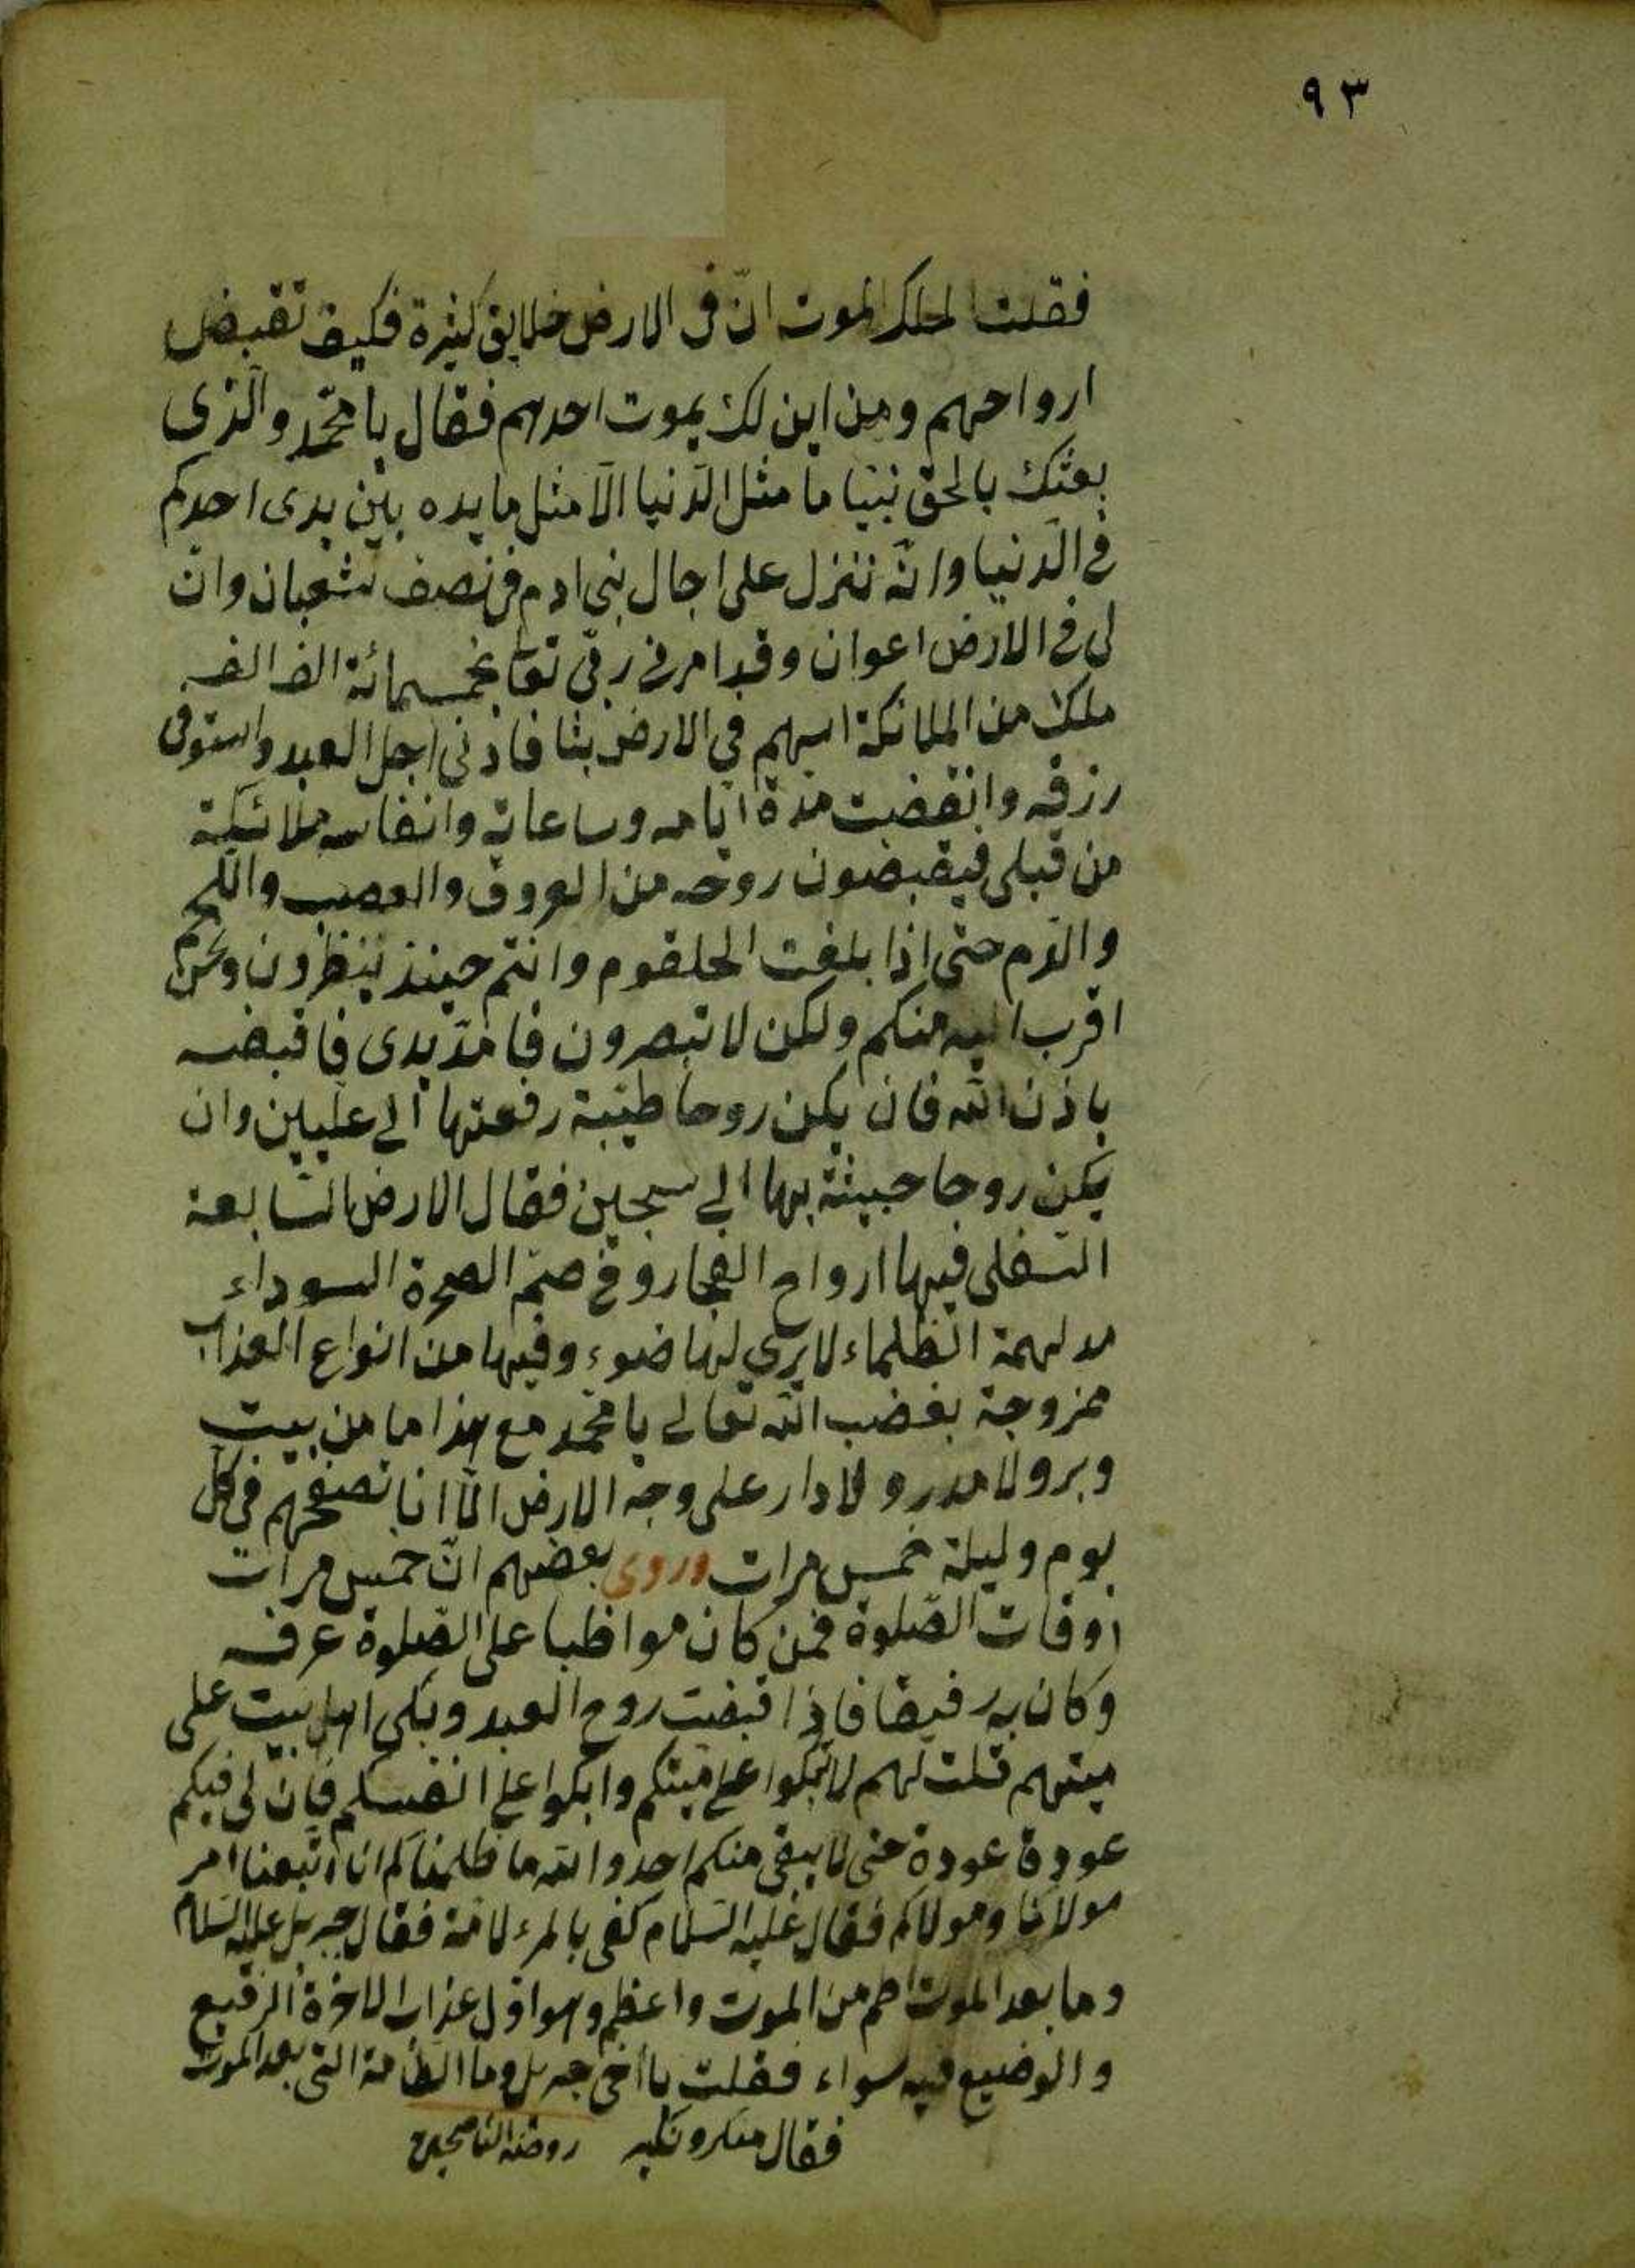 ٩٣
فقلت لملك الموت انّ فى الارض خلايق كثيرة فكيف تقبض
ارواحهم ومن اين لك يموت احدهم فقال يا محمّد والّذى
بعثك بالحق نبيّا ما مثل الدّنيا الّا مثل مايده بين يدى احدكم
فى الدّنيا وانّه تنزل على اجال بنى ادم فى نصف شعبان وانّ
لى فى الارض اعوان وقد امرنى ربّى تعا بخمسمائة الف الف
ملك من الملائكة فى الارض اجل العبد واستوفى
رزقه وانقضت مدة ايّامه وساعاته وانفاسه ملائكة
من قبلى فيقبضون روحه من العروق والعصب واللّحم
والدّم حتى اذا بلغت الحلقوم وانتم حينئذ تنظرون ونحن
اقرب اليه منكم ولكن لا تبصرون فامدّ يدى فاقبضه
باذن اللّه فان يكن روحا طيّبة رفعتها الى عليين وان
يكن روحا خبيثة بها الى سجين فقال الارض السّابعة
السّفلى فيها ارواح الفجار وفى السوداء
مدلهمة الظلماء لا يرى لها ضوء وفيها من انواع العذاب
ممزوجة بغضب اللّه تعالى يا محمّد مع هذا ما من بيت
وبر ولا مدر ولا دار على وجه الارض الّا انا نصفحهم فى كل
يوم وليلة خمس مرات وروى بعضهم انّ خمس مرات
اوقات الصّلوة فمن كان مواظبا على الصّلوة عرفه
وكان به رفيقا فاذا قبضت روح العبد وبكى اهل بيت على
ميتهم قلت لهم لا تبكوا على ميتكم وابكوا على انفسكم فانّ لى فيكم
عودة عودة حتى لا يبقى منكم احد واللّه ما ظلمناكم انا اتبعنا امر
مولانا ومولاكم فقال عليه السّلام كفى بالمرء لامة فقال جبريل عليه السّلام
وما بعد الموت اطم من الموت واعظم وهو اوّل عذاب الاخرة الرفيع
والوضيع فيه سواء فقلت يا اخى جبريل وما الطّامة التى بعد الموت
فقال منكر ونكير روضة النّاصحين